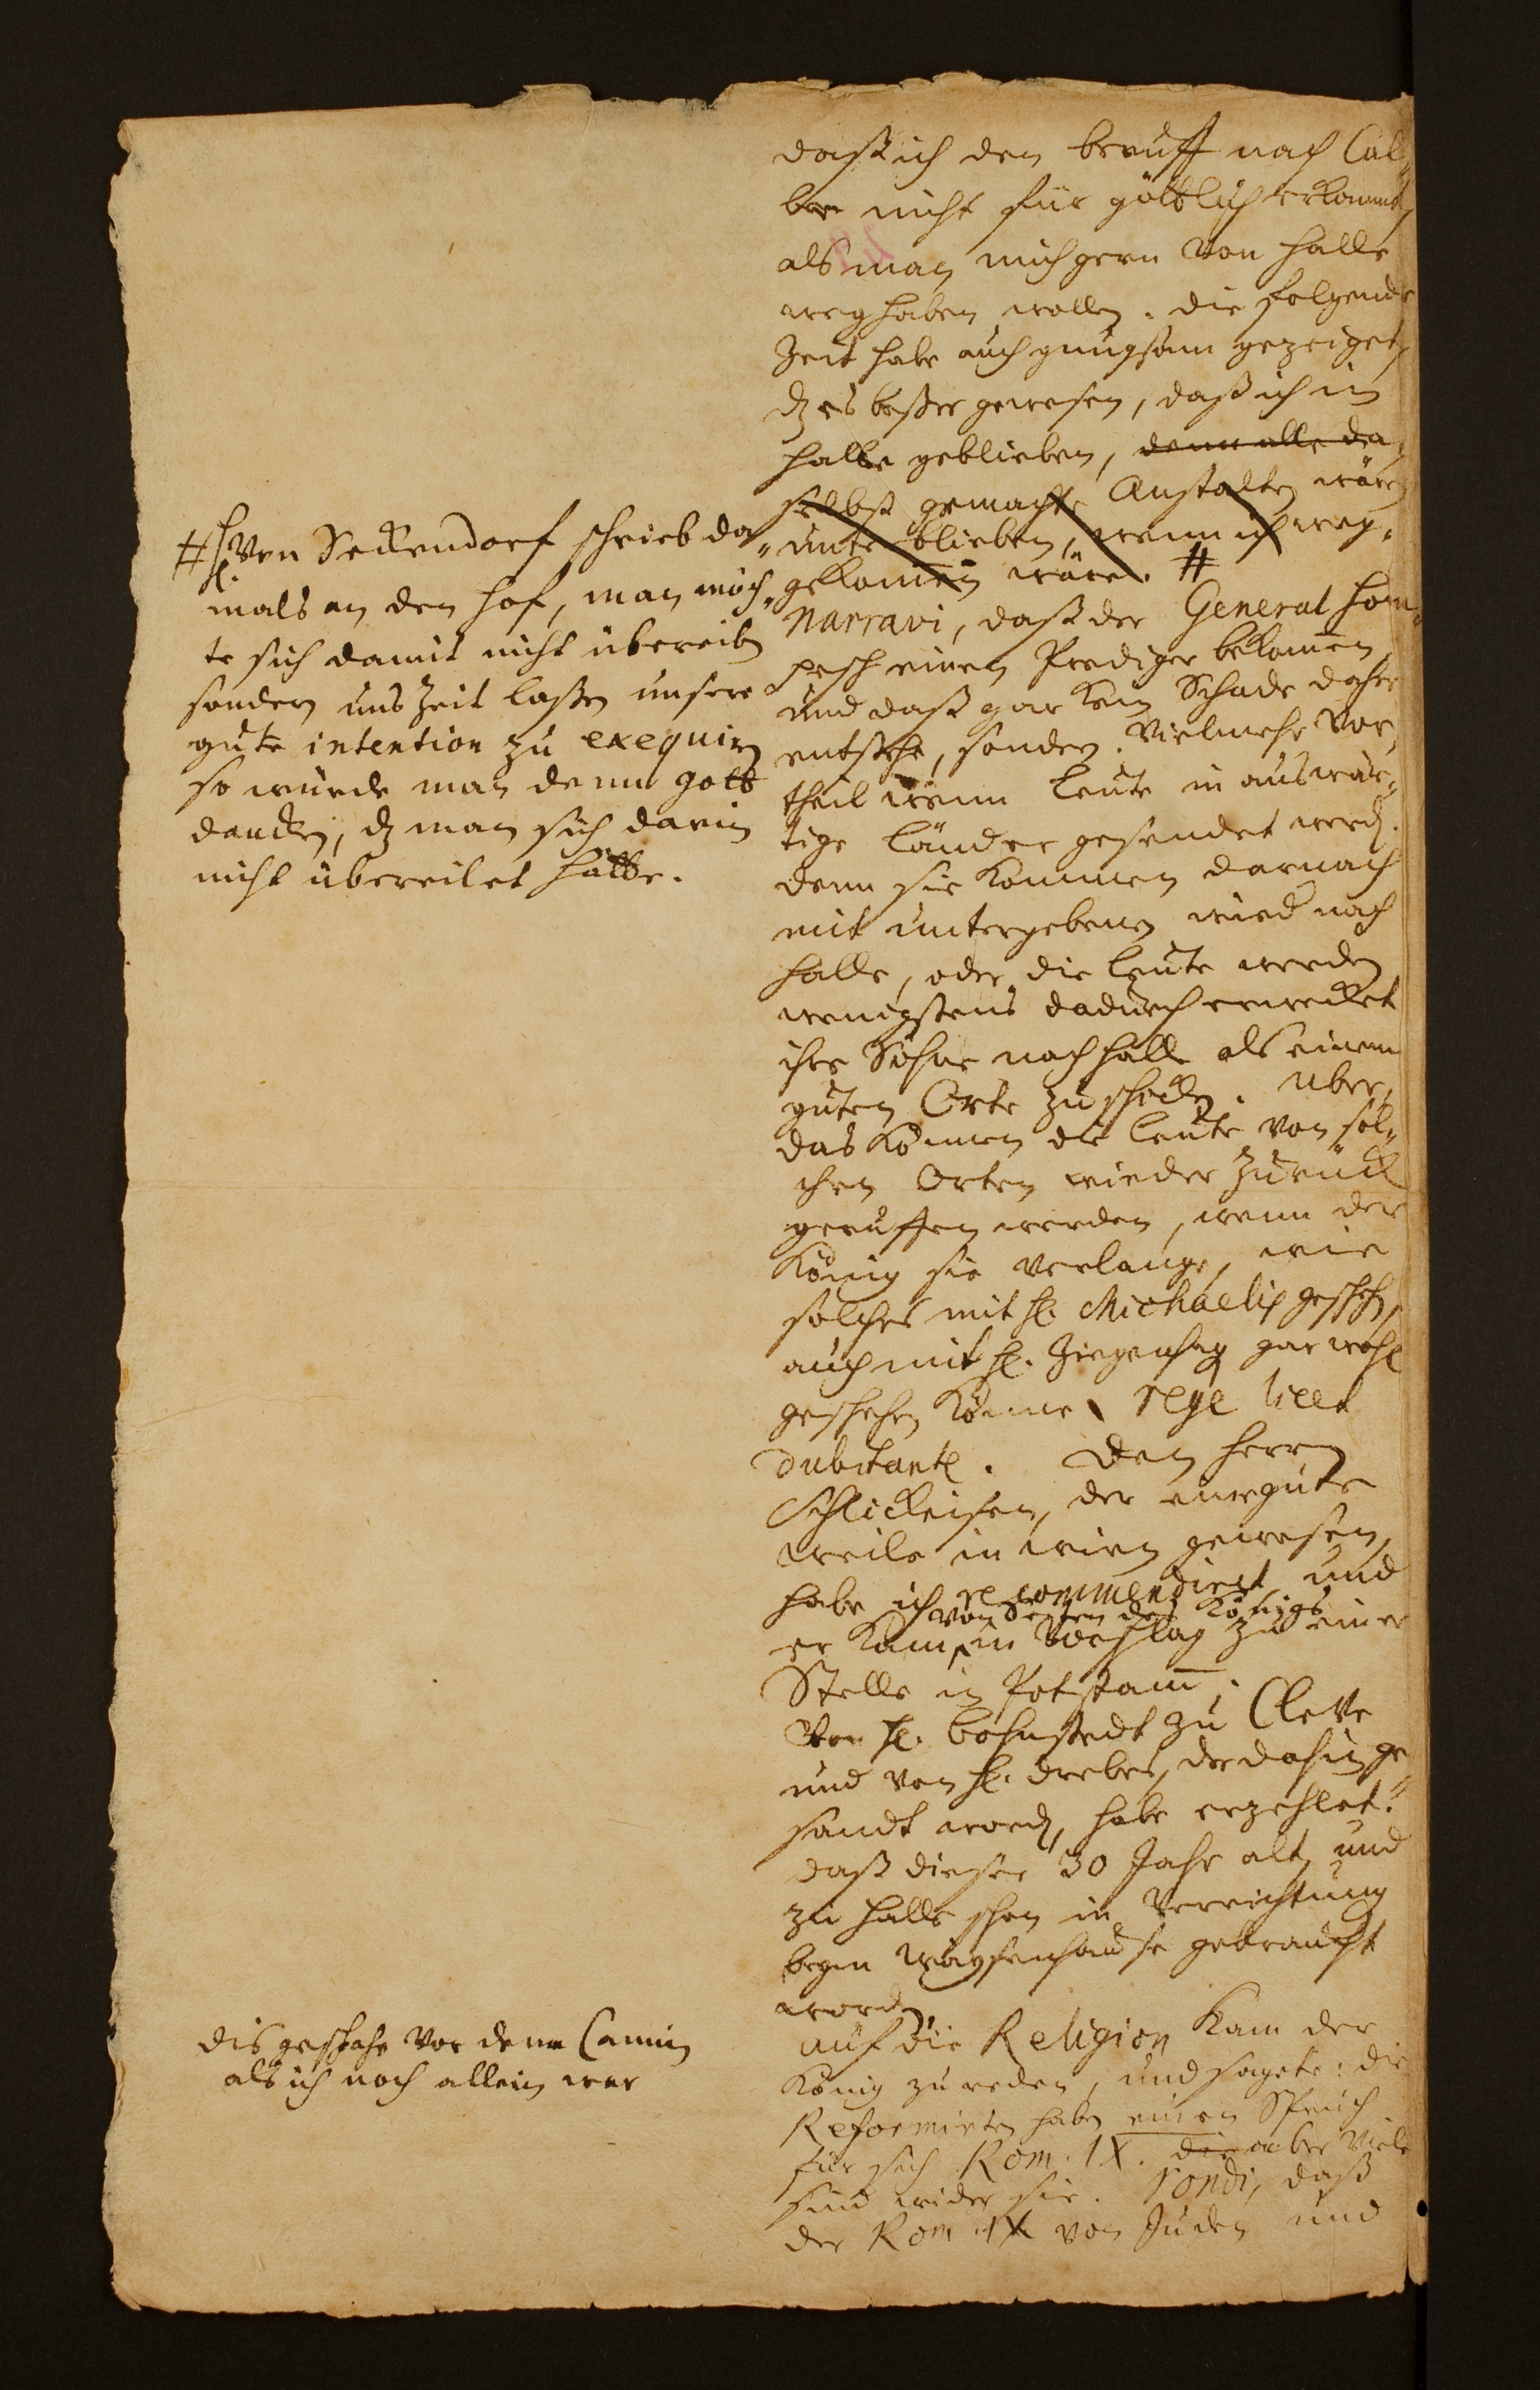 daß ich den beruff nach Cal„
be nicht für göttlich erkannt,
als man mich gern von Halle
weg haben wollen. die folgende
Zeit habe auch gnugsam gezeiget,
dz es beßer gewesen, daß ich in
Halle geblieben, denn alle da„
selbst gemachte Anstalten wären
unterblieben, wenn ich weg„
gekom̅en wäre. #
Narravi, daß der General Hom„
pesch einen Prediger bekom̅en,
und daß gar kein Schade daher
entstehe, sondern vielmehr Vor„
theil wenn Leute in auswär„
tige Länder gesendet werd.
denn sie kommen darnach
mit untergebenen wied nach
Halle, oder die Leute werden
wenigstens dadurch erwecket
ihre Söhne nach Halle als einem
guten Orte zu schicken. Uber„
das können die Leute von sol„
chen Orten wieder zurück
geruffen werden, wenn der
König sie verlange, wie
solches mit H. Michaelis gescheh,
auch mit H. Ziegenhag gar wohl
geschehen könne, rege licet
dubitante. Den Herrn
Schlickeisen, der eine gute
weile in Wien gewesen,
habe ich recommendiret und
von Seiten des Königs
er kam in Vorschlag zu einer
Stelle in Potstam̅.
Von H. Bohnstedt zu Cleve
und von H. Drebes, der dahin ge„
sandt word, habe erzehlet:
daß dieser 30 Jahr alt, und
zu Halle schon in Verrichtung
beym Waysenhause gebraucht
worden.
auf die Religion kam der
König zu reden, und sagete: die
Reformirten haben einen Spruch
für sich Rom. IX. die aber viele
sind wider sie. Rondi, daß
der Rom. IX von Juden und
# H. von Seckendorf schrieb da„
mals an den Hof, man möch„
te sich damit nicht übereilen
sondern uns Zeit laßen unsere
gute intention zu exequiren
so würde man denn Gott
dancken, dz man sich darin
nicht übereilet hätte.
dis geschahe vor dem Camin
als ich noch allein war